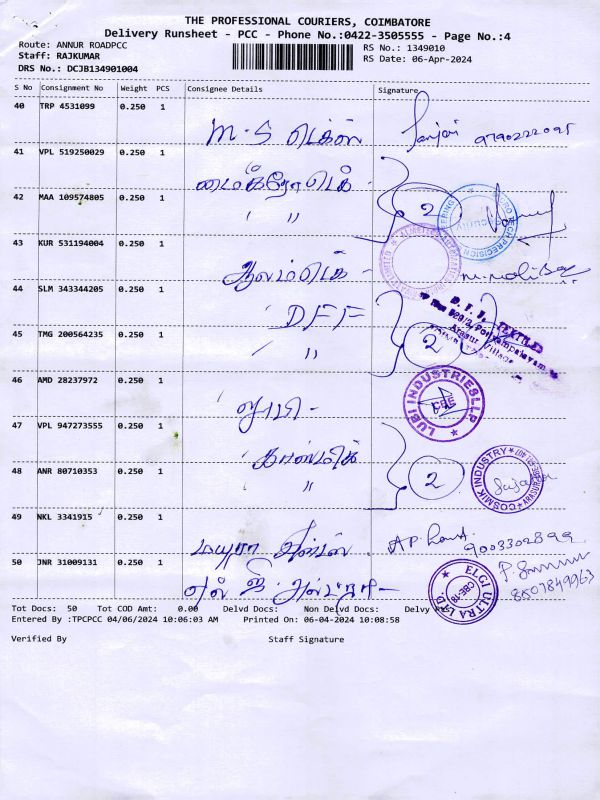 THE PROFESSIONAL COURIERS, COIMBATORE
Delivery Runsheet - PCC - Phone No.:0422-3505555 - Page No.:4
Route: ANNUR ROADPCC
RS No.: 1349010
Staff: RAJKUMAR
RS Date: 06-Apr-2024
DRS No.: DCJB134901004
S No Consignment No Weight PCS Consignee Details Signature
40 TRP 4531099 0.250 1
M.S டெக்ஸ் 9790222095
41 VPL 519250029 0.250 1
மைக்ரோடெக் -
42 MAA 109574805 0.250 1
" 2
43 KUR 531194004 0.250 1
44 SLM 343344205 0.250 1
DFF
45 TMG 200564235 0.250 1
" 2
46 AMD 28237972 0.250 1
லூபி -
LUBI INDUSTRIES LLP
CBE
47 VPL 947273555 0.250 1
காஸ்மிக்
48 ANR 80710353 0.250 1
" 2
COSMIK INDUSTRY
49 NKL 3341915 0.250 1
மயூரா 9003302899
50 JNR 31009131 0.250 1
எல் ஜி அல்ட்ரா -
ELGI ULTRA LTD.
CBE-18
8507849963
Tot Docs: 50 Tot COD Amt: 0.00 Delvd Docs: Non Delvd Docs: Delvy
Entered By :TPCPCC 04/06/2024 10:06:03 AM Printed On: 06-04-2024 10:08:58
Verified By Staff Signature